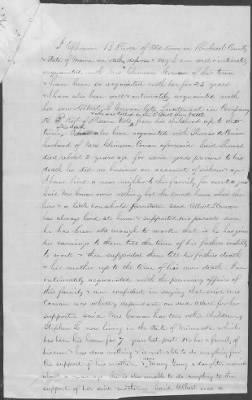 I Ephraim B Pierce of Oldtown in Penobscot County
& State of Maine on oath depose & say I am well & intimately
acquainted with Mrs Cowan of this town
& have been so acquainted with her for 25 years
I have also been well & intimately acquainted with
her son Albert Cowan late Lieutenant in Company
Regt of Maine Vols from his childhood up to the
time also been acquainted with Thomas
husband of Mrs Cowan aforesaid Said Thomas
died about 2 years ago for some years previous to his
death he did no business on account of sickness
I have lived a near neighbor to this family for near
Said Mrs Cowan owns nothing but the small house where she
lives & a little household furniture Said Albert Cowan
has always lived at home & supported his parents since
he has been old enough to work that is he has given
his earnings to them till the time of his fathers inability
to work & then supported them till his fathers death
& his mother up to the time of his own death I am
intimately acquainted with the pecuniary affairs of
this family & am confident in saying that said Mrs
Cowan was wholly dependent on said Albert for her
support Said Mrs Cowan has two other children
Stephen now living in the State of Minnesota which
has been his home for 7 years last past He has a family of
his own & has done nothing & is not able to do anything for
the support of his mother & Fanny a daughter married
about a year ago she is also unable to do anything to the
support of her said mother Said Albert was a